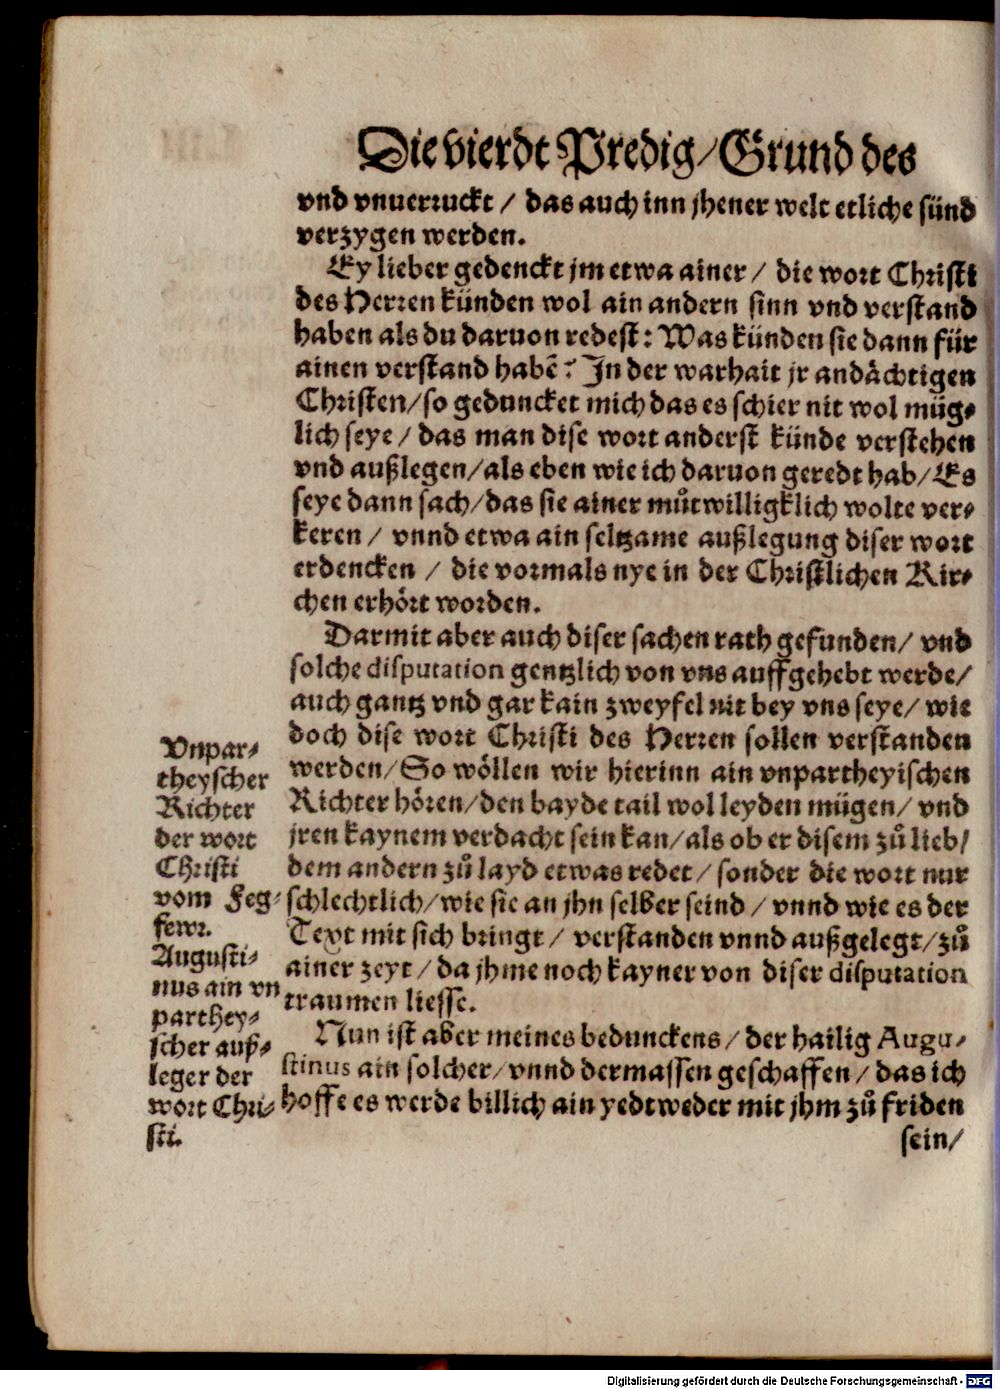 Die vierdt Predig/Grund des
vnd vnuerruckt / das auch inn jhener welt etliche sünd
verzygen werden.
Ey lieber gedenckt jm etwa ainer / die wort Christi
des Herren künden wol ain andern sinn vnd verstand
haben als du daruon redest: Was künden sie dann für
ainen verstand habē? In der warhait jr andächtigen
Christen/so geduncket mich das es schier nit wol müg⸗
lich seye / das man dise wort anderst künde verstehen
vnd außlegen/als eben wie ich daruon geredt hab/Es
seye dann sach/das sie ainer můtwilligklich wolte ver⸗
keren / vnnd etwa ain seltzame außlegung diser wort
erdencken / die vormals nye in der Christlichen Kir⸗
chen erhört worden.
Darmit aber auch diser sachen rath gefunden/ vnd
solche disputation gentzlich von vns auffgehebt werde/
auch gantz vnd gar kain zweyfel nit bey vns seye/ wie
doch dise wort Christi des Herren sollen verstanden
werden/So wöllen wir hierinn ain vnpartheyischen
Richter hören/den bayde tail wol leyden mügen/ vnd
jren kaynem verdacht sein kan/als ob er disem zů lieb/
dem andern zů layd etwas redet/ sonder die wort nur
schlechtlich/wie sie an jhn selber seind / vnnd wie es der
Text mit sich bringt / verstanden vnnd außgelegt/zů
ainer zeyt / da jhme noch kayner von diser disputation
traumen liesse.
Nun ist aber meines beduncken​s / der hailig Augu⸗
stinus ain solcher/vnnd dermassen geschaffen / das ich
hoffe es werde billich ain yedtweder mit jhm zů friden
sein/
Vnpar⸗
theyscher
Richter
der wort
Christi
vom Feg⸗
fewr.
Augusti⸗
nus ain vn
parthey⸗
scher auß⸗
leger der
wort Chri⸗
sti.
Digitalisierung gefördert durch die Deutsche Forschungsgemeinschaft - DFG